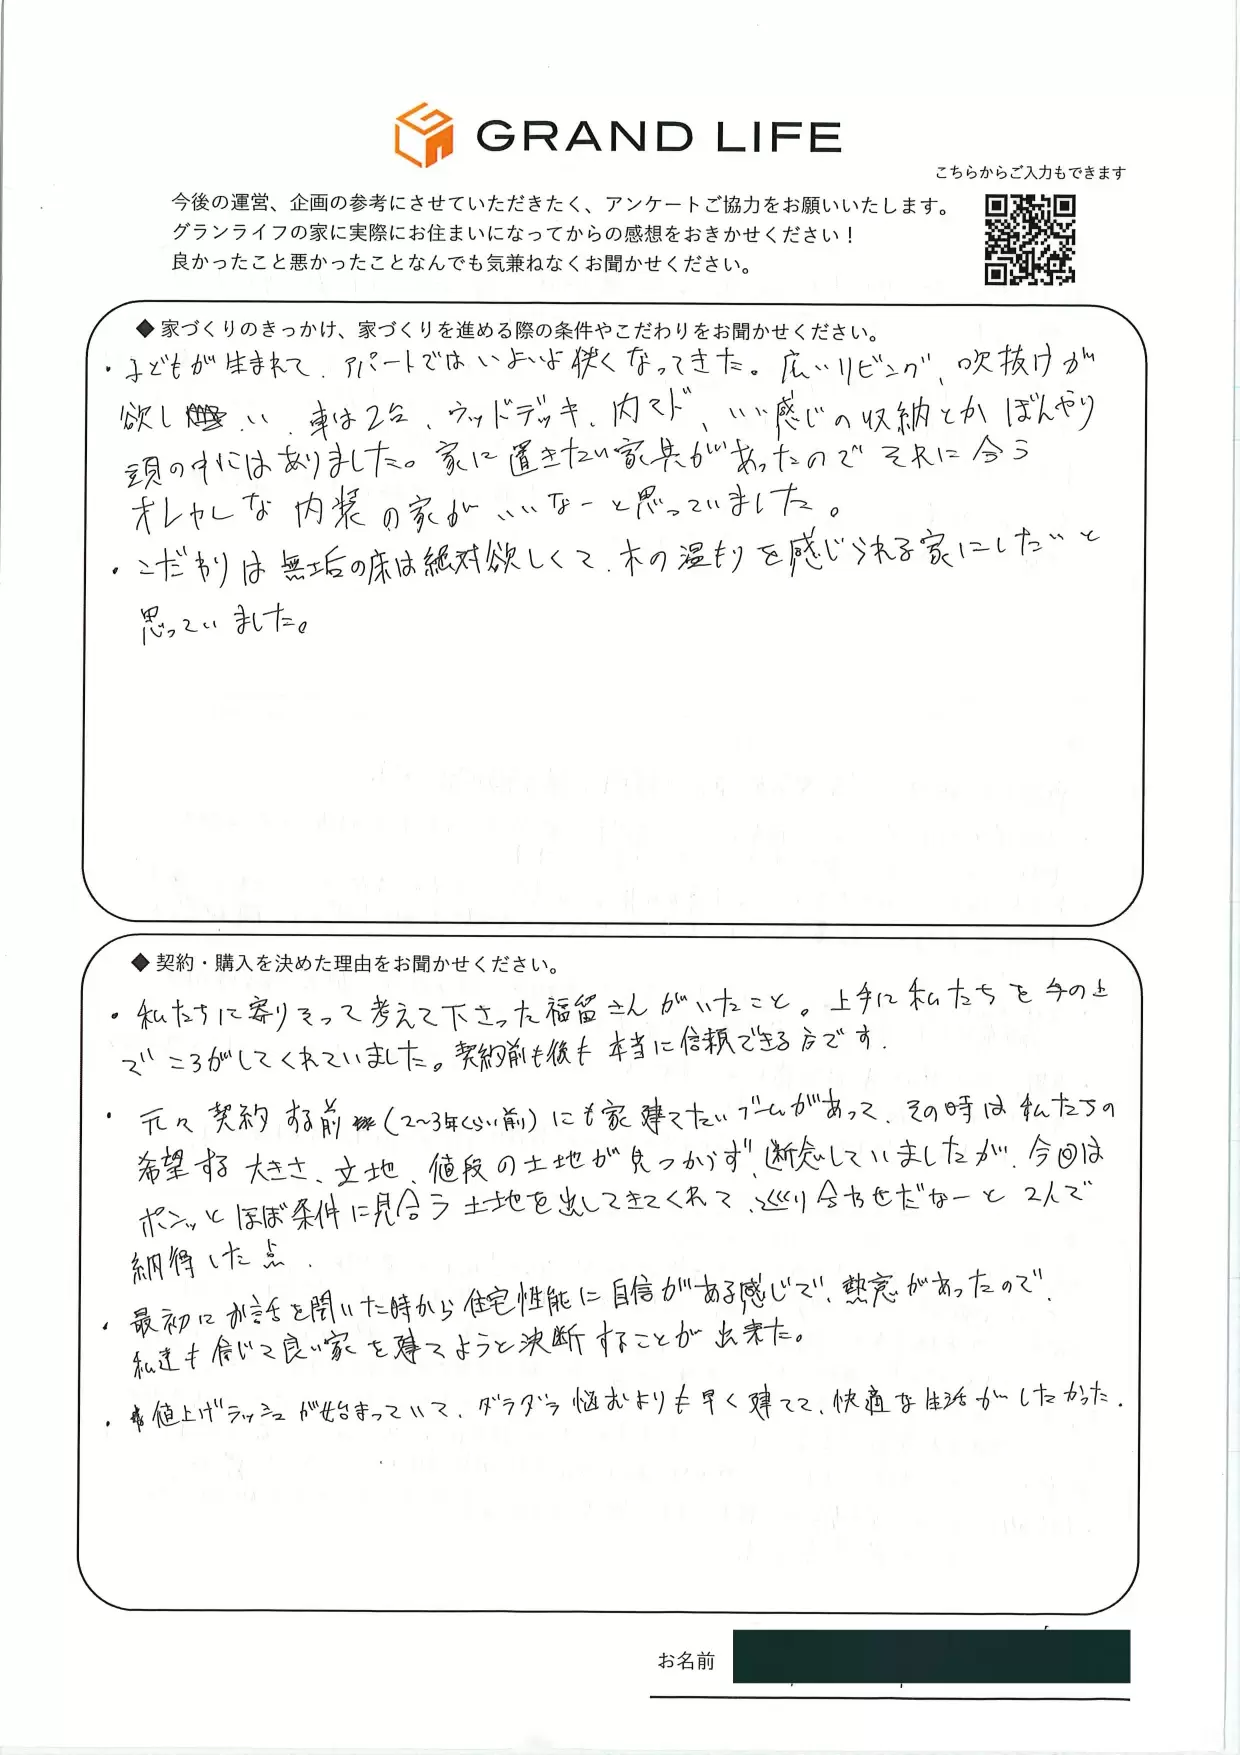 GRAND LIFE
こちらからご入力もできます
今後の運営、企画の参考にさせていただきたく、アンケートご協力をお願いいたします。
グランライフの家に実際にお住まいになってからの感想をおきかせください！
良かったこと悪かったことなんでも気兼ねなくお聞かせください。
◆ 家づくりのきっかけ、家づくりを進める際の条件やこだわりをお聞かせください。
・子どもが生まれて、アパートではいよいよ狭くなってきた。広いリビング、吹抜けが
欲しい、車は2台、ウッドデッキ、内マド、いい感じの収納とかぼんやり
頭の中にはありました。家に置きたい家具があったのでそれに合う
オシャレな内装の家がいいなーと思っていました。
・こだわりは無垢の床は絶対欲しくて、木の温もりを感じられる家にしたいと
思っていました。
◆ 契約・購入を決めた理由をお聞かせください。
・私たちに寄りそって考えて下さった福留さんがいたこと。上手に私たちを手の上
でころがしてくれていました。契約前も後も本当に信頼できる方です.
・元々契約する前(2〜3年くらい前)にも家建てたいブームがあって、その時は私たちの
希望する大きさ、立地、値段の土地が見つからず、断念していましたが、今回は
ポンッとほぼ条件に見合う土地を出してきてくれて、巡り合わせだなーと2人で
納得した点.
・最初にお話を聞いた時から住宅性能に自信がある感じで、熱意があったので、
私達も信じて良い家を建てようと決断することが出来た。
・値上げラッシュが始まっていて、ダラダラ悩むよりも早く建てて、快適な生活がしたかった.
お名前